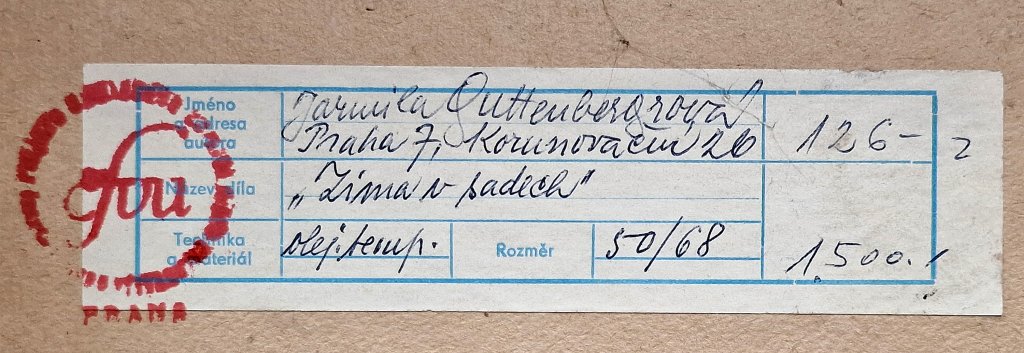 Jméno
a adresa
autora
Jarmila Guttenbergrová
Praha 7, Korunovační 26
126- 2
Název díla
„Zima v sadech"
Technika
a materiál
olej.temp.
Rozměr
50/68
1.500.-
čfvu
PRAHA